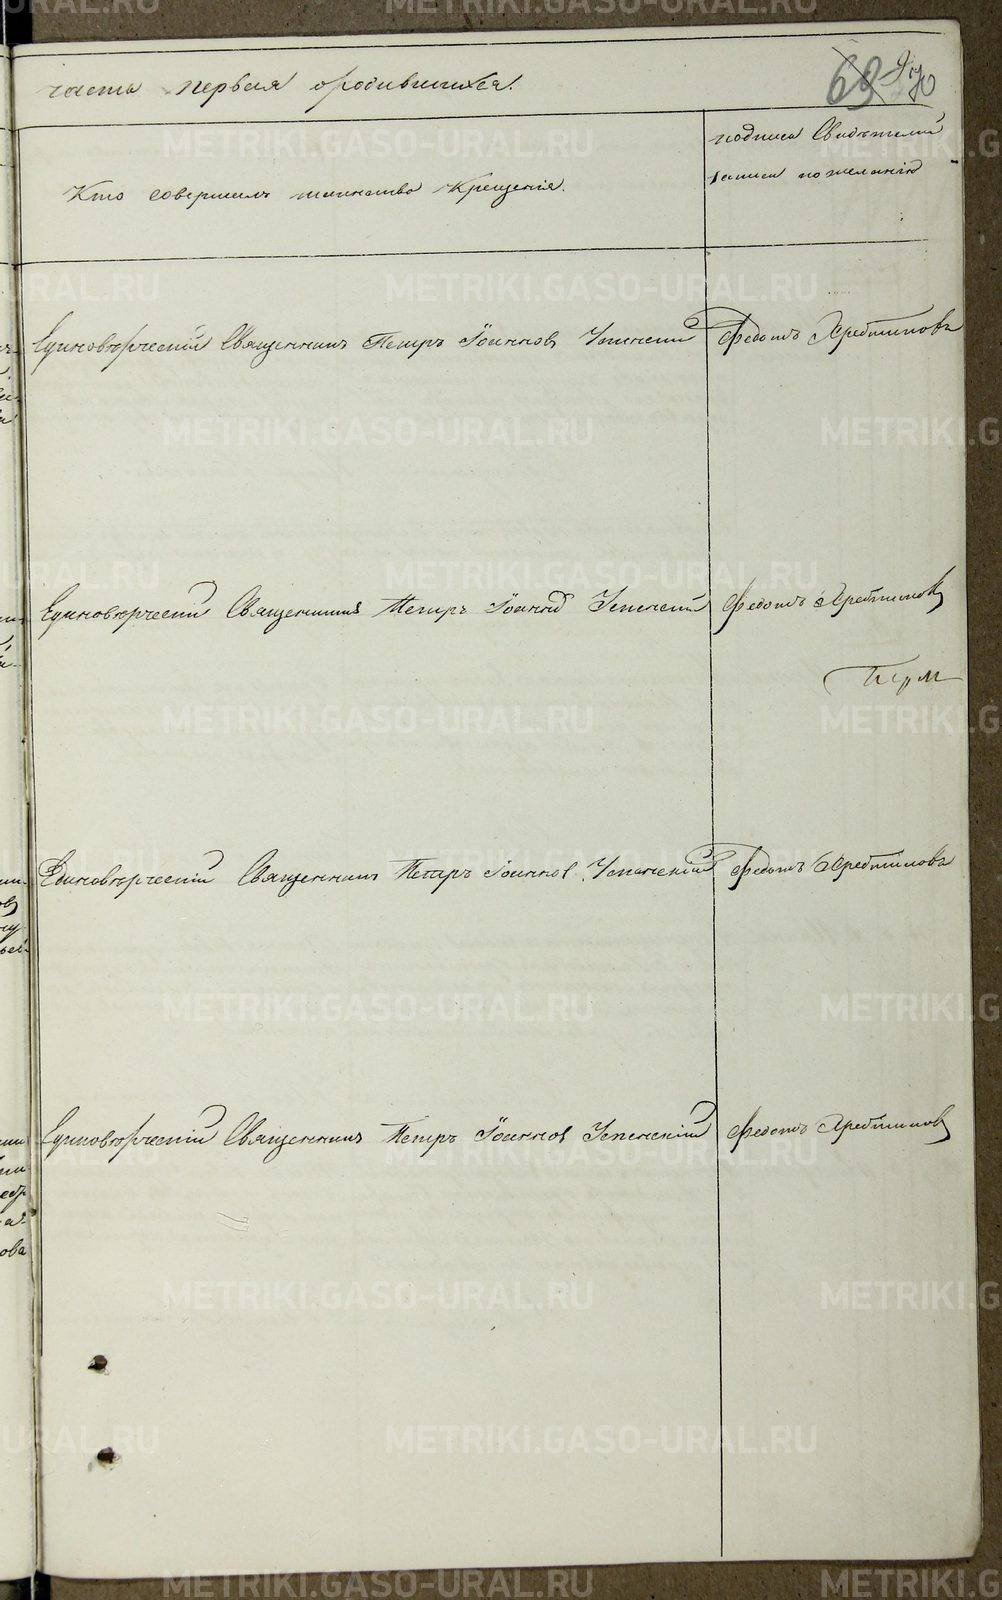 часть первая о родившихся.
69
Кто совершилъ таинство Крещенія.
подписи Свидѣтелей
записи по желанію
Единовѣрческій Священникъ Петръ Іоанновъ Успенскій
Федотъ
Единовѣрческій Священникъ Петръ Іоаннов Успенскій
Федотъ
Единовѣрческій Священникъ Петръ Іоаннов Успенскій
Федотъ
Единовѣрческій Священникъ Петръ Іоаннов Успенскій
Федотъ
METRIKI.GASO-URAL.RU